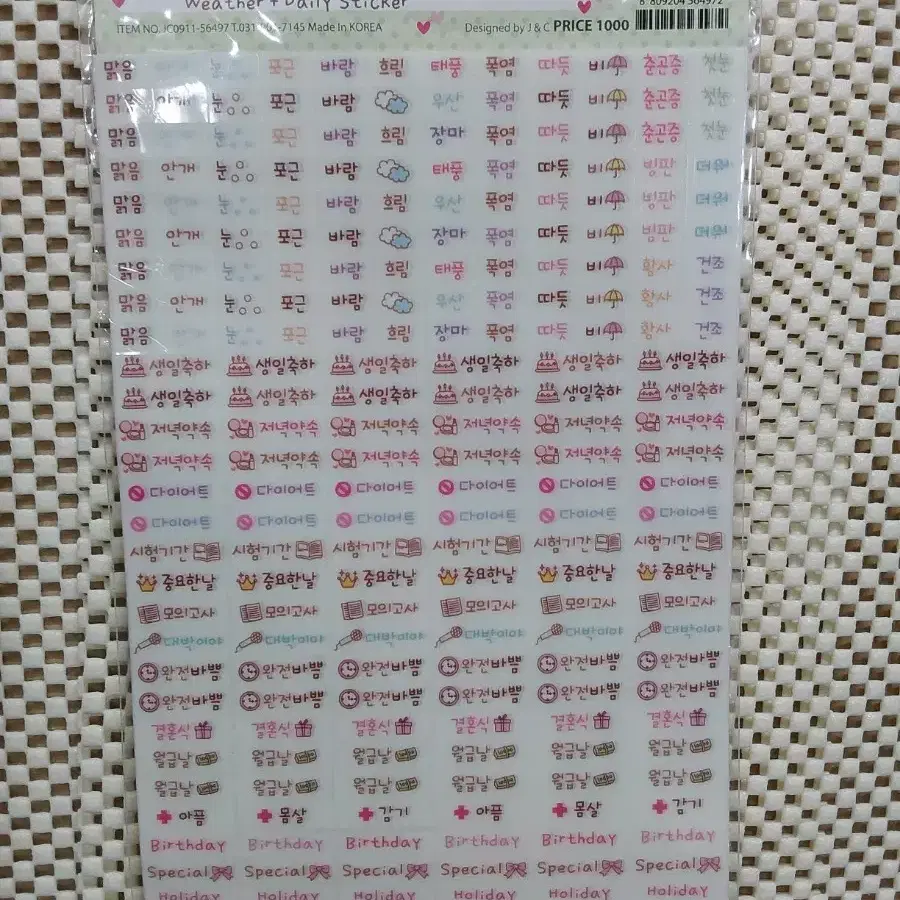 Weather + Daily Sticker
Made In KOREA Designed by J & C PRICE 1000 8 809204 564972
맑음 안개 눈 포근 바람 흐림 태풍 폭염 따듯 비 춘곤증 첫눈
맑음 안개 눈 포근 바람 우산 폭염 따듯 비 춘곤증 첫눈
맑음 눈 포근 바람 흐림 장마 폭염 따듯 비 춘곤증 첫눈
맑음 안개 눈 포근 바람 태풍 폭염 따듯 비 빙판 더워
맑음 안개 눈 포근 바람 흐림 우산 폭염 따듯 비 빙판 더워
맑음 안개 눈 포근 바람 장마 폭염 따듯 비 빙판 더워
맑음 안개 눈 포근 바람 흐림 태풍 폭염 따듯 비 황사 건조
맑음 안개 눈 포근 바람 우산 폭염 따듯 비 황사 건조
맑음 눈 포근 바람 흐림 장마 폭염 따듯 비 황사 건조
생일축하 생일축하 생일축하 생일축하 생일축하 생일축하
생일축하 생일축하 생일축하 생일축하 생일축하 생일축하
저녁약속 저녁약속 저녁약속 저녁약속 저녁약속 저녁약속
저녁약속 저녁약속 저녁약속 저녁약속 저녁약속 저녁약속
다이어트 다이어트 다이어트 다이어트 다이어트 다이어트
다이어트 다이어트 다이어트 다이어트 다이어트 다이어트
시험기간 시험기간 시험기간 시험기간 시험기간 시험기간
중요한날 중요한날 중요한날 중요한날 중요한날 중요한날
모의고사 모의고사 모의고사 모의고사 모의고사 모의고사
대박이야 대박이야 대박이야 대박이야 대박이야 대박이야
완전바쁨 완전바쁨 완전바쁨 완전바쁨 완전바쁨 완전바쁨
완전바쁨 완전바쁨 완전바쁨 완전바쁨 완전바쁨 완전바쁨
결혼식 결혼식 결혼식 결혼식 결혼식 결혼식
월급날 월급날 월급날 월급날 월급날 월급날
월급날 월급날 월급날 월급날 월급날 월급날
아픔 몸살 감기 아픔 몸살 감기
Birthday Birthday Birthday Birthday Birthday Birthday
Special Special Special Special Special Special
Holiday Holiday Holiday Holiday Holiday Holiday